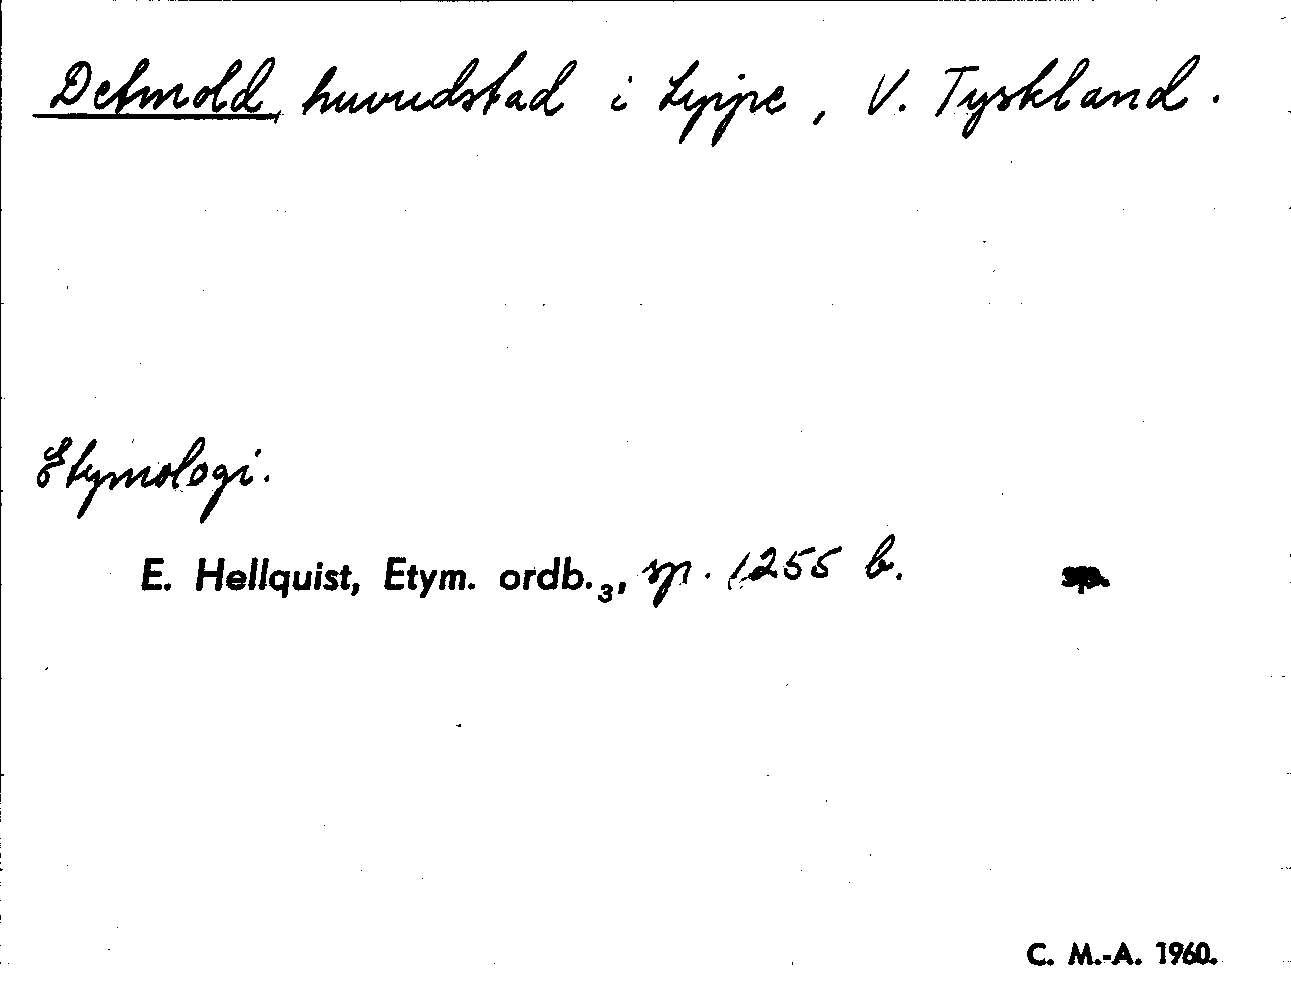 Detmold, huvudstad i Lippe, V. Tyskland.
Etymologi.
E. Hellquist, Etym. ordb.3, sp. 1255 b.
C. M.-A. 1960.